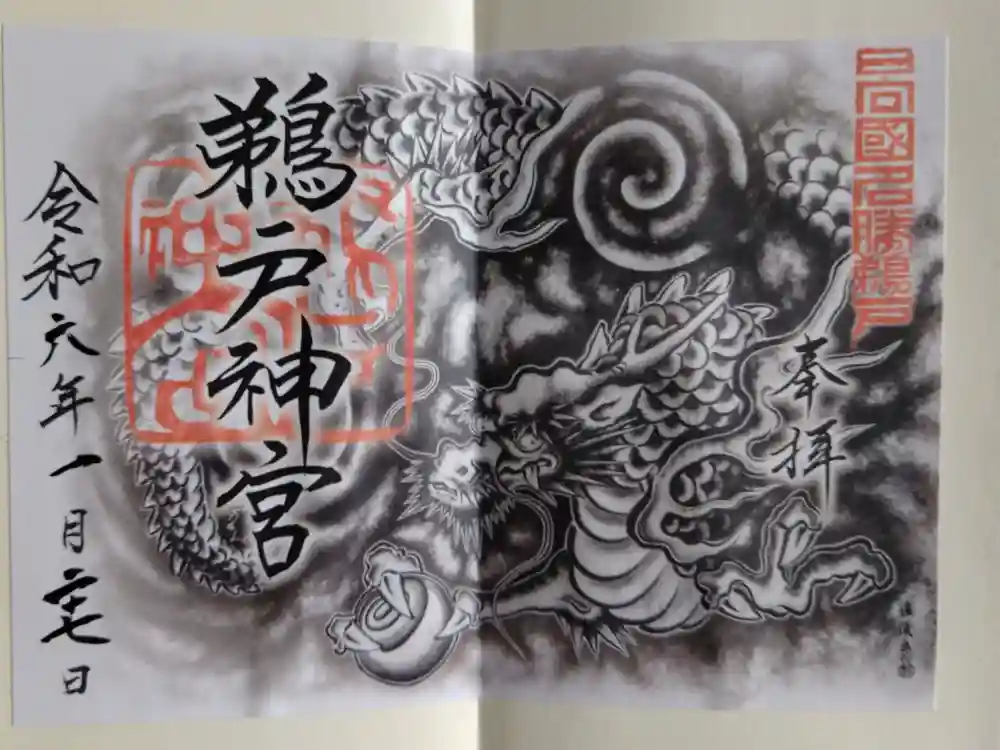 日向國名勝鵜戸
奉拝
鵜戸神宮
令和六年一月二十七日